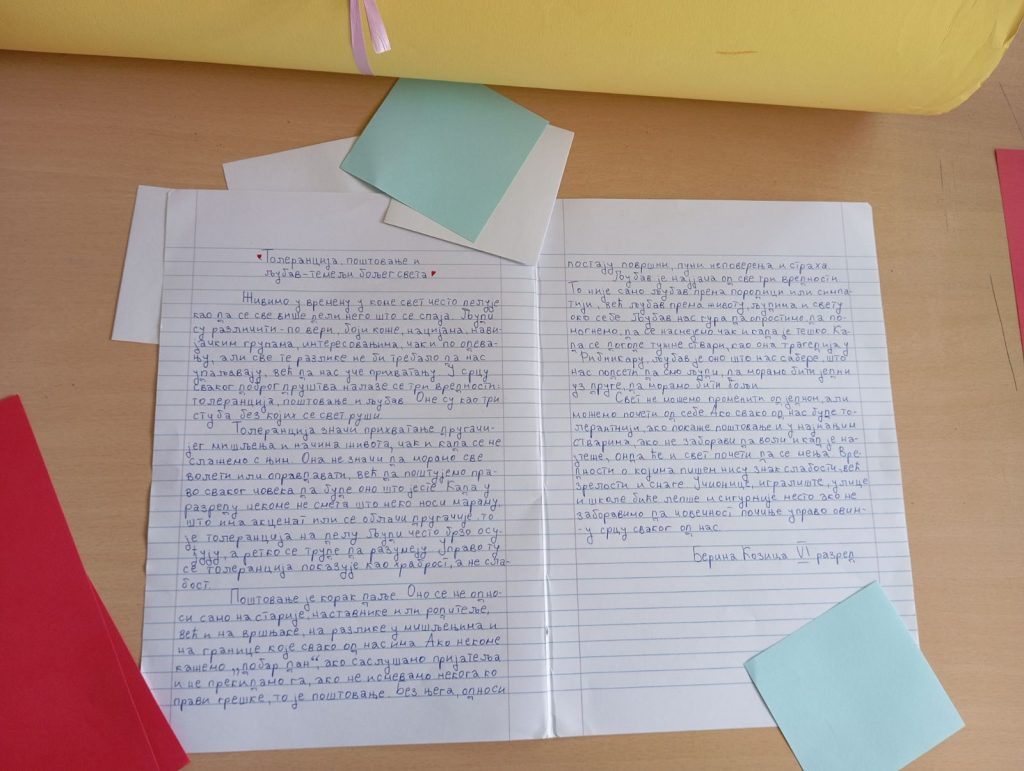 Толеранција, поштовање и
љубав-темељи бољег света
Живимо у времену у коме свет често делује
као да се све више дели него што се спаја. Људи
су различити - по вери, боји коже, нацијама, нави-
јачким групама, интересовањима, чак и по одева-
њу, али све те разлике не би требало да нас
удаљавају, већ да нас уче прихватању. У срцу
сваког доброг друштва налазе се три вредности:
толеранција, поштовање и љубав. Оне су као три
стуба без којих се свет руши.
Толеранција значи прихватање другачи-
јег мишљења и начина живота, чак и када се не
слажемо с њим. Она не значи да морамо све
волети или оправдавати, већ да поштујемо пра-
во сваког човека да буде оно што јесте. Када у
разреду некоме не смета што неко носи мараму,
што има акценат или се облачи другачије, то
је толеранција на делу. Људи често брзо осу-
ђују, а ретко се труде да разумеју. Управо ту
се толеранција показује као храброст, а не сла-
бост.
Поштовање је корак даље. Оно се не одно-
си само на старије, наставнике или родитеље,
већ и на вршњаке, на разлике у мишљењима и
на границе које свако од нас има. Ако некоме
кажемо „добар дан“, ако саслушамо пријатеља
и не прекидамо га, ако не исмевамо некога ко
прави грешке, то је поштовање. Без њега, односи
постају површни, пуни неповерења и страха.
Љубав је најјача од све три вредности.
То није само љубав према породици или симпа-
тији, већ љубав према животу, људима и свету
око себе. Љубав нас гура да опростимо, да по-
могнемо, да се насмејемо чак и када је тешко. Ка-
да се догоде тужне ствари, као она трагедија у
Рибникару, љубав је оно што нас сабере, што
нас подсети да смо људи, да морамо бити једни
уз друге, да морамо бити бољи.
Свет не можемо променити од једном, али
можемо почети од себе. Ако свако од нас буде то-
лерантнији, ако покаже поштовање и у најмањим
стварима, ако не заборави да воли и кад је на-
јтеше, онда ће и свет почети да се мења. Вре-
дности о којима пишем нису знак слабости, већ
зрелости и снаге. Учионице, игралиште, улице
и школе биће лепше и сигурније место ако не
заборавимо да човечност почиње управо овим-
- у срцу сваког од нас.
Берина Козица VI разред